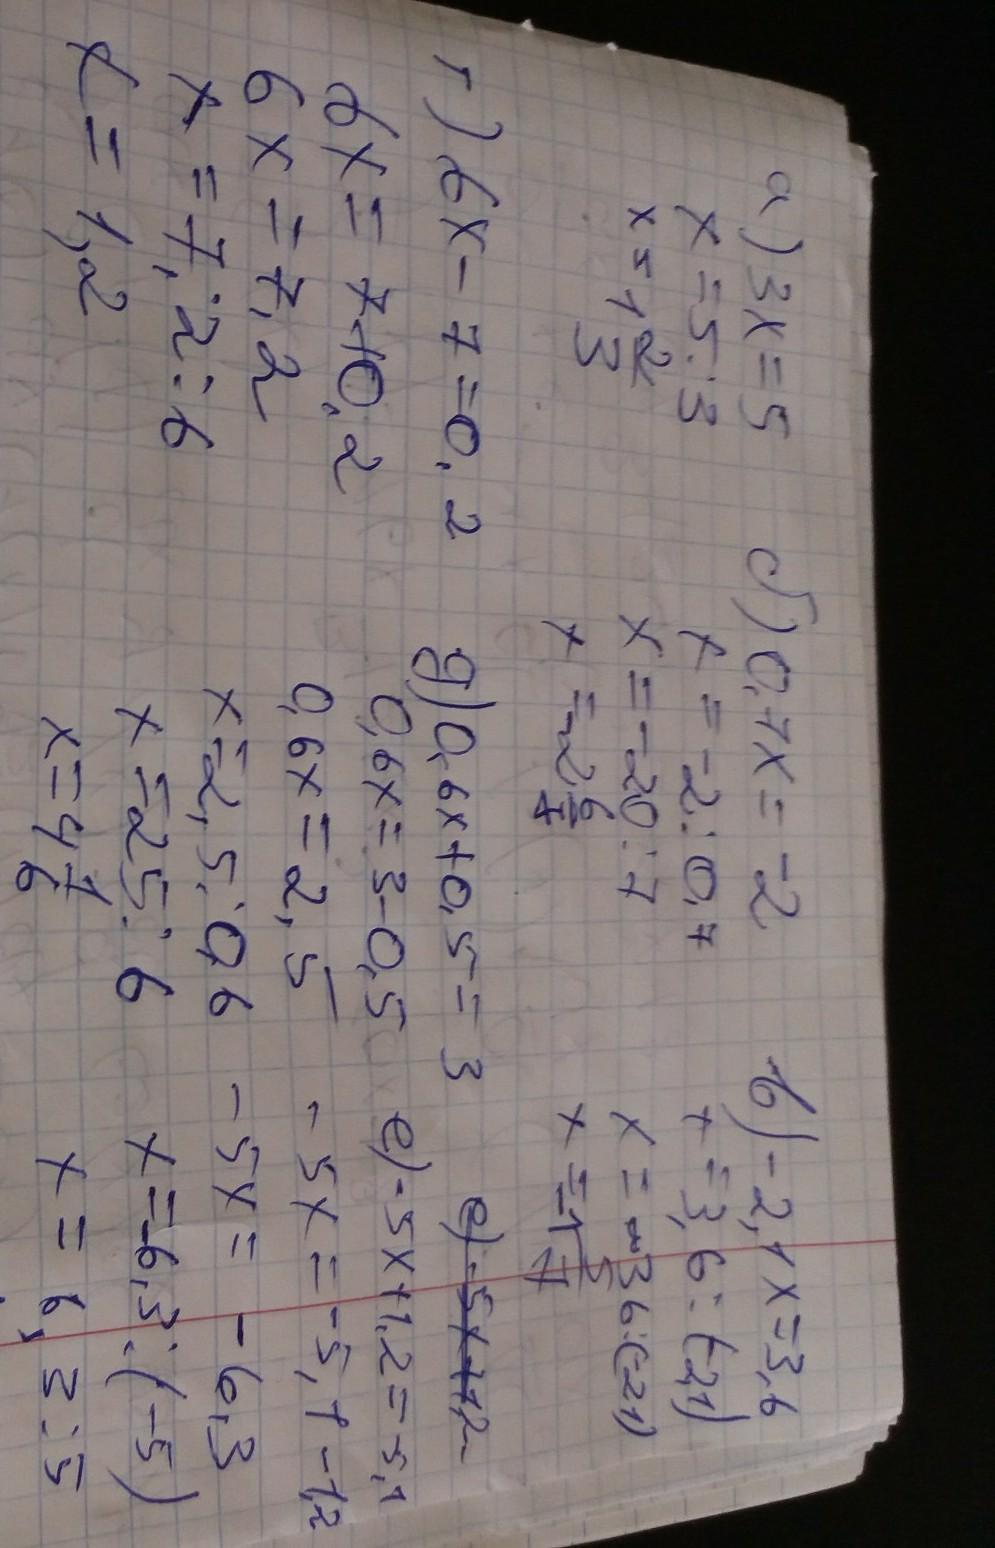 а) 3x=5
x=5:3
x=1 2/3
б) 0,7x=-2
x=-2:0,7
x=-20:7
x=-2 6/7
в) -2,1x=3,6
x=3,6:(-2,1)
x=-36:(21)
x=-1 5/7
г) 6x-7=0,2
6x=7+0,2
6x=7,2
x=7,2:6
x=1,2
д) 0,6x+0,5=3
0,6x=3-0,5
0,6x=2,5
x=2,5:0,6
x=25:6
x=4 1/6
е) -5x+1,2
е) -5x+1,2=-5,1
-5x=-5,1-1,2
-5x=-6,3
x=-6,3:(-5)
x=6,3:5